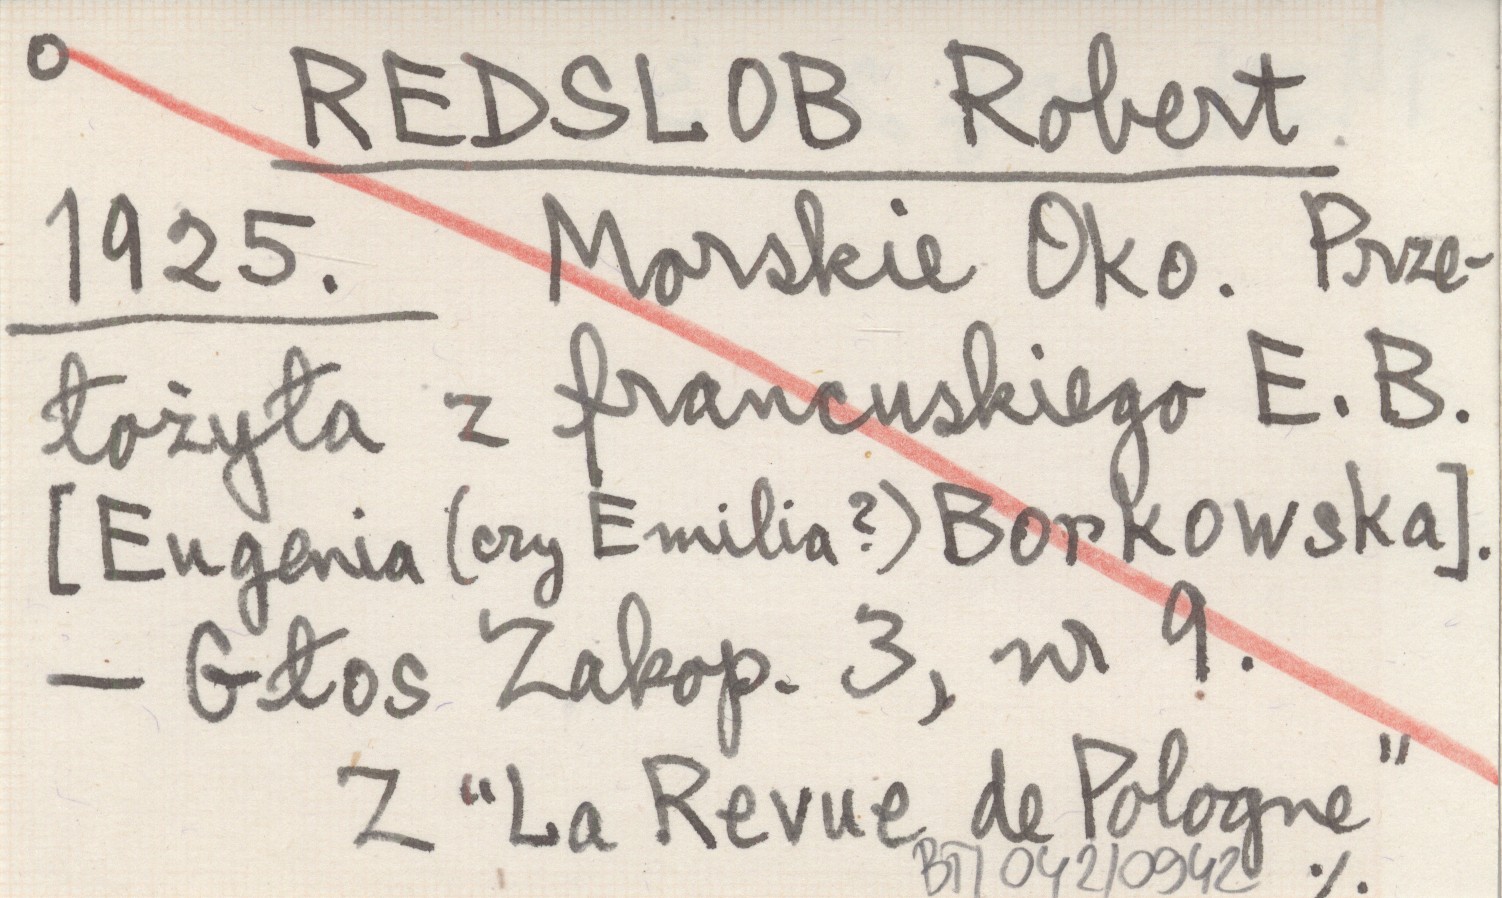 o REDSLOB Robert
1925. Morskie Oko. Prze-
łożyła z francuskiego E. B.
[Eugenia (czy Emilia?) Borkowska].
— Głos Zakop. 3, nr 9.
Z "La Revue de Pologne"
BT/042/0942 ./.